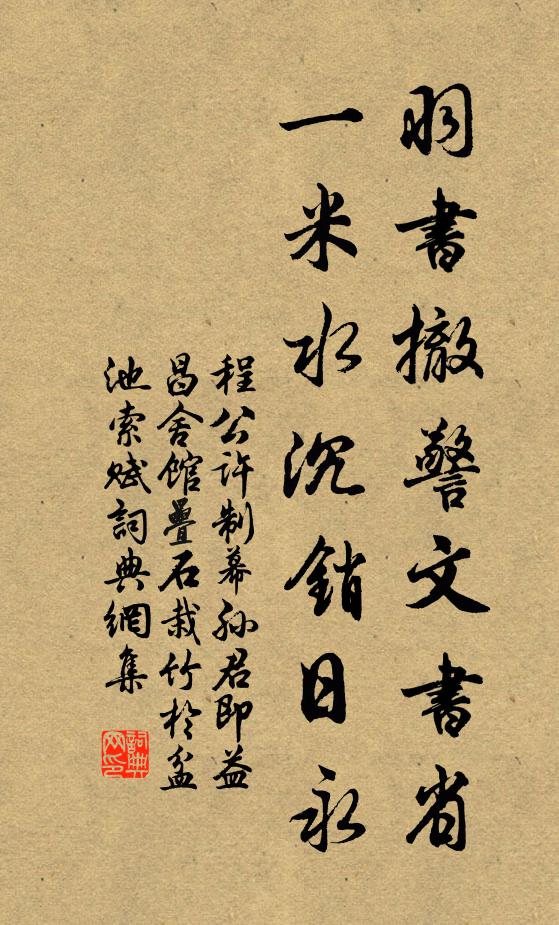 羽書撤警文書省
一米水沉銷日永
程公許制幕孫君即益
昌舍館疊石栽竹於盆
池索賦詞典網集
詞典網印